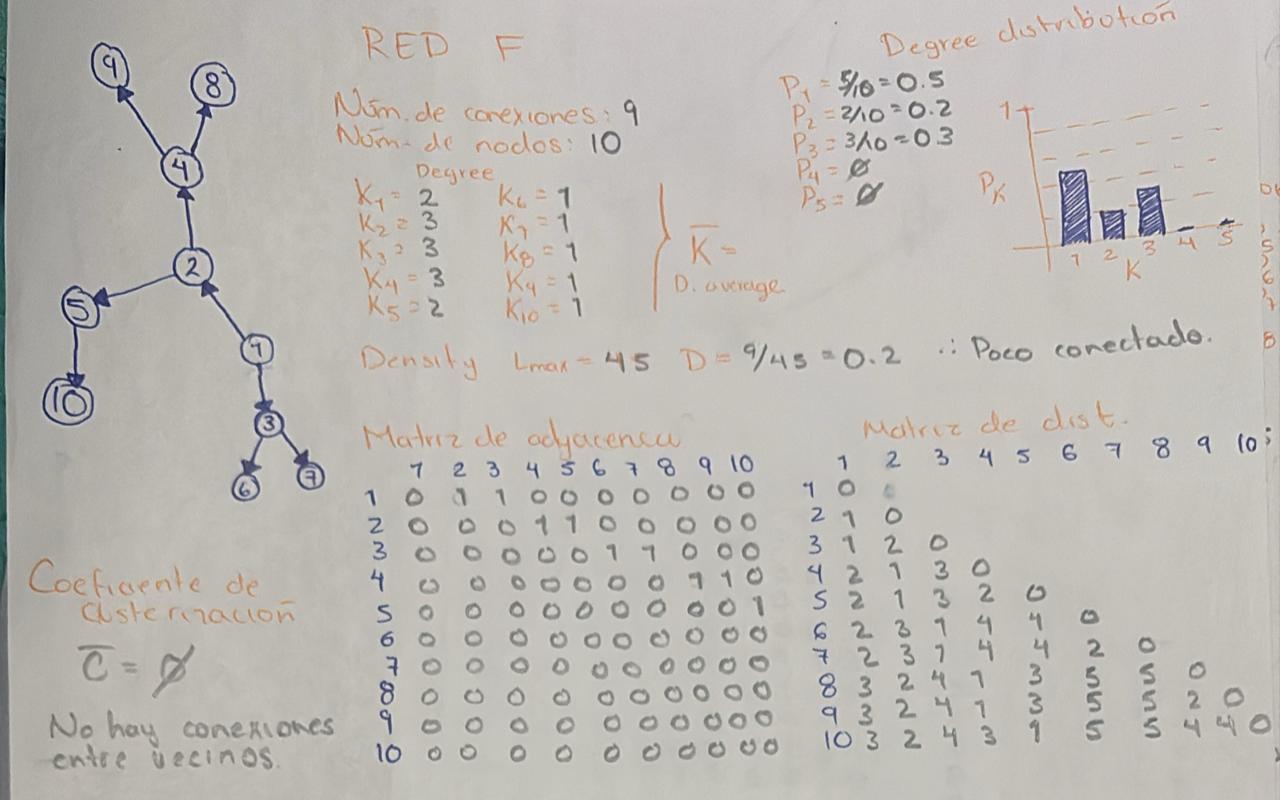 RED F
Núm. de conexiones: 9
Núm. de nodos: 10
Degree
K1 = 2 K6 = 1
K2 = 3 K7 = 1
K3 = 3 K8 = 1
K4 = 3 K9 = 1
K5 = 2 K10 = 1
K̅ =
D. average
Degree distribution
P1 = 5/10 = 0.5
P2 = 2/10 = 0.2
P3 = 3/10 = 0.3
P4 = ∅
P5 = ∅
1
PK
1 2 3 4 5
K
Density Lmax = 45 D = 9/45 = 0.2 ∴ Poco conectado.
9
8
4
2
5
1
10
3
6
7
Matriz de adyacencia
1 2 3 4 5 6 7 8 9 10
1 0 1 1 0 0 0 0 0 0 0
2 0 0 0 1 1 0 0 0 0 0
3 0 0 0 0 0 1 1 0 0 0
4 0 0 0 0 0 0 0 1 1 0
5 0 0 0 0 0 0 0 0 0 1
6 0 0 0 0 0 0 0 0 0 0
7 0 0 0 0 0 0 0 0 0 0
8 0 0 0 0 0 0 0 0 0 0
9 0 0 0 0 0 0 0 0 0 0
10 0 0 0 0 0 0 0 0 0 0
Matriz de dist.
1 2 3 4 5 6 7 8 9 10
1 0
2 1 0
3 1 2 0
4 2 1 3 0
5 2 1 3 2 0
6 2 3 1 4 4 0
7 2 3 1 4 4 2 0
8 3 2 4 1 3 5 5 0
9 3 2 4 1 3 5 5 2 0
10 3 2 4 3 1 5 5 4 4 0
Coeficiente de
clusterización
C̅ = ∅
No hay conexiones
entre vecinos.